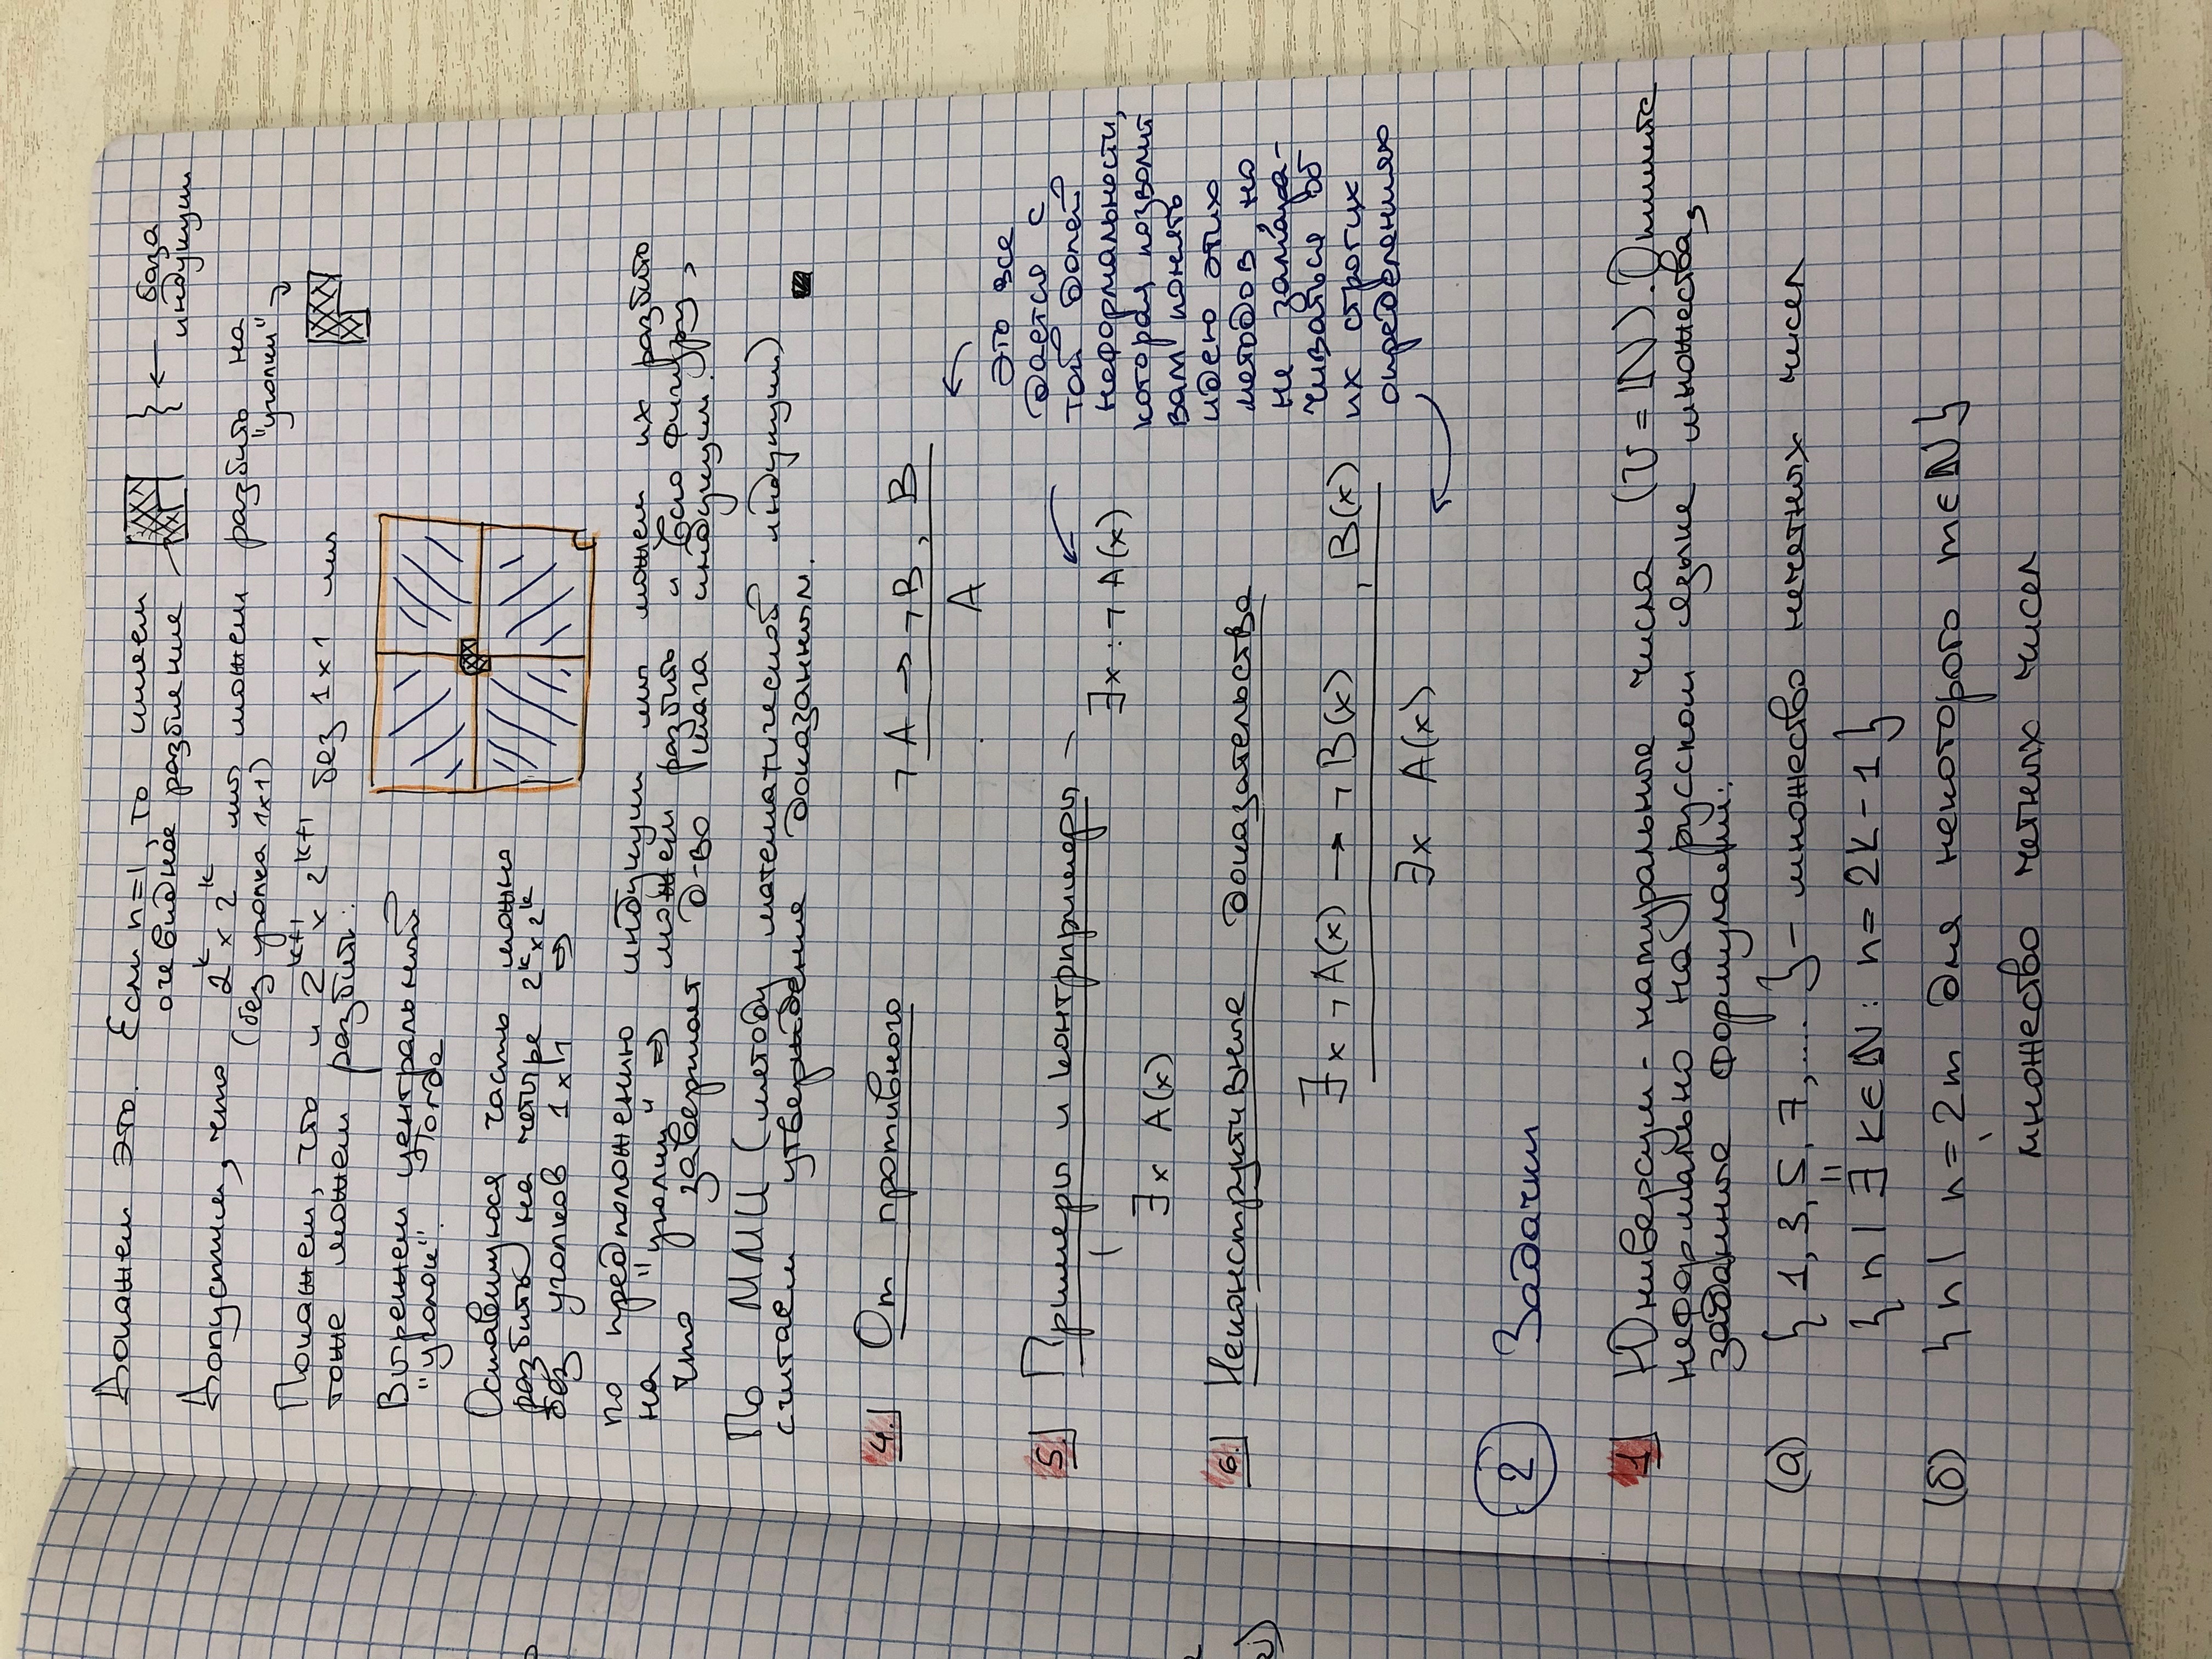 Докажем это. Если n=1, то имеем
очевидное разбиение
} ← база
индукции
Допустим, что 2^k × 2^k мы можем разбить на
(без уголка 1×1) "уголки"
Покажем, что и 2^{k+1} × 2^{k+1} без 1×1 мы
тоже можем разбить:
Вырежем центральный
"уголок". Тогда
Оставшуюся часть можно
разбить на четыре 2^k × 2^k
без уголков 1×1 ⇒
по предположению индукции мы можем их разбить
на "уголки" ⇒ можем разбить и всю фигуру,
что завершает д-во шага индукции.
По ММИ (методу математической индукции)
считаем утверждение доказанным. ■
4. От противного
¬A → ¬B, B
A
5. Примеры и контрпримеры –
∃x : ¬A(x)
∃x A(x)
6. Неконструктивные доказательства
∃x ¬A(x) → ¬B(x) , B(x)
∃x A(x)
Это все
дается с
той долей
неформальности,
которая позволит
вам понять
идею этих
методов, но
не замора-
чиваться об
их строгих
определениях
2 Задачки
1. Юниверсум - натуральные числа (U = ℕ). Опишите
неформально на русском языке множества,
заданные формулами:
(а) { 1, 3, 5, 7, .... } – множество нечетных чисел
=
{ n | ∃ k∈ℕ : n = 2k - 1 }
(б) { n | n = 2m для некоторого m∈ℕ }
множество четных чисел